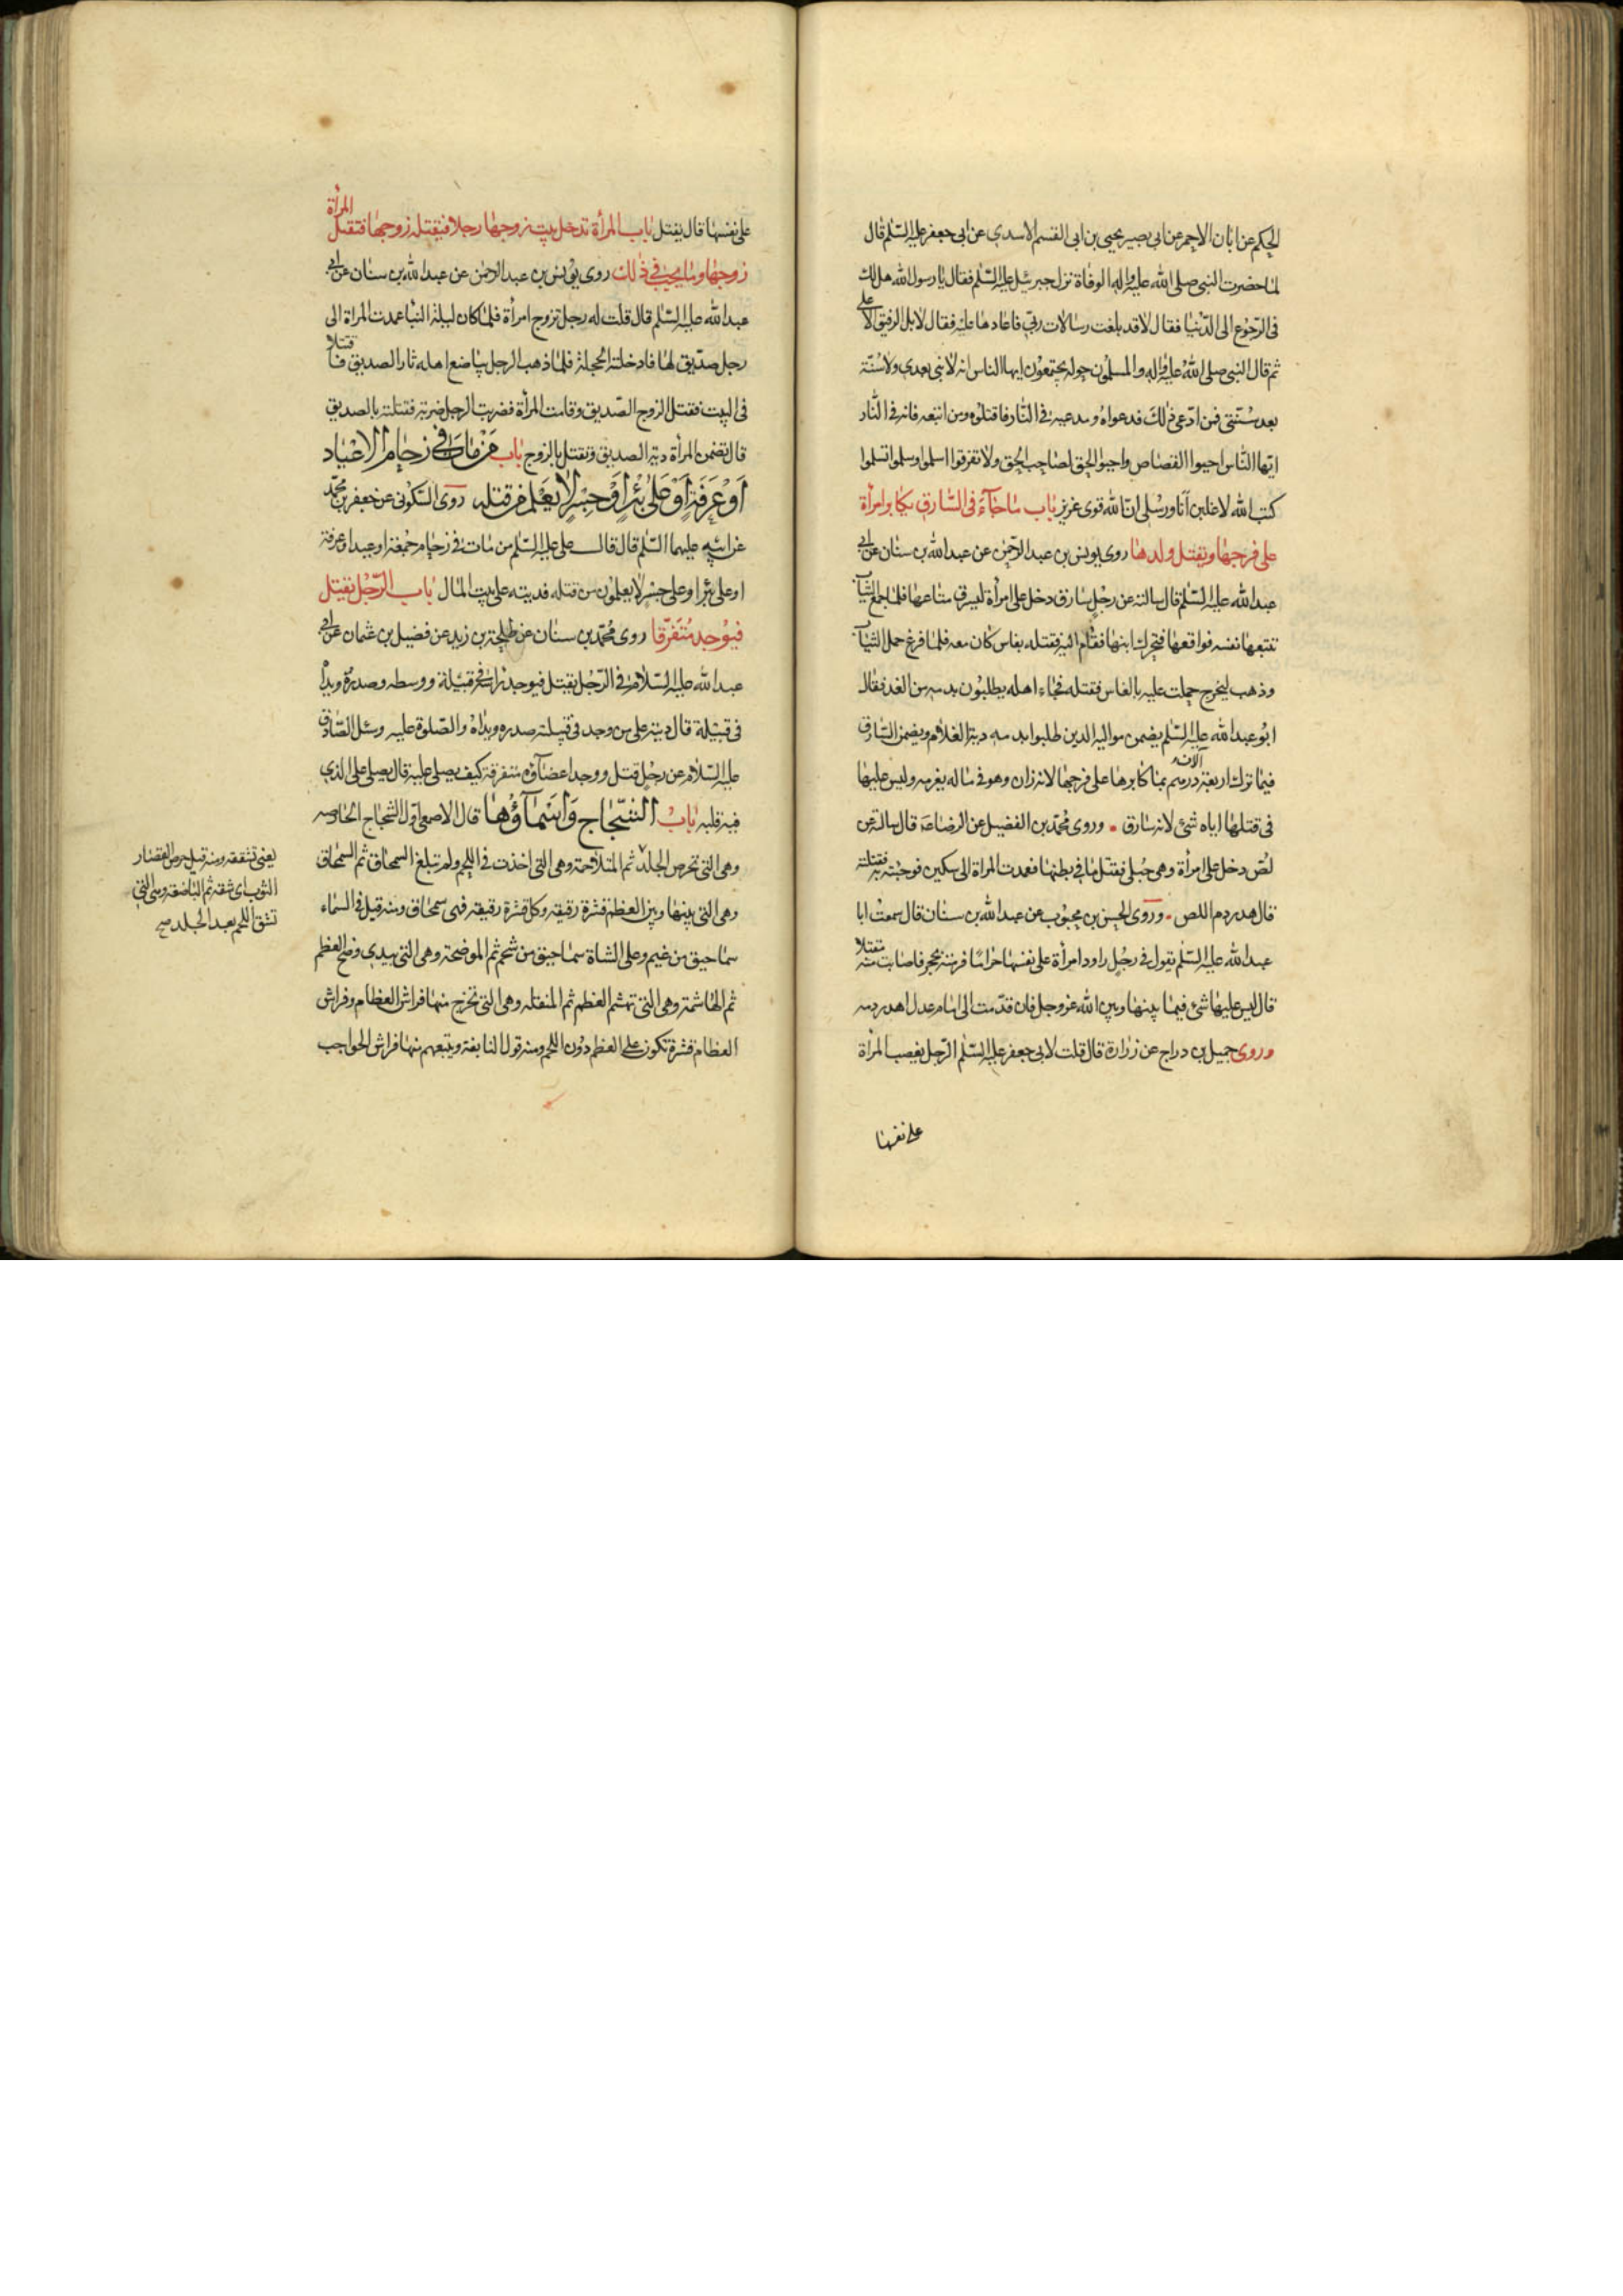 الحكم عن ابان الاحمر عن ابى بصير يحيى بن ابى القسم الاسدي عن ابى جعفر عليه السّلم قال
لما حضرت النبى صلى الله عليه واله الوفاة نزل جبرئيل عليه السّلم فقال يا رسول الله هل لك
فى الرّجوع الى الدّنيا فقال لا قد بلغت رسالات ربّى فاعادها عليه فقال لا بل الرفيق الاعلى
ثم قال النبى صلى الله عليه واله والمسلمون حوله مجتمعون ايها الناس انه لا نبى بعدي ولا سُنّة
بعد سُنّتى فمن ادّعى ذلك فدعواه وبدعته فى النّار فاقتلوه ومن اتبعه فانه فى النّار
ايّها النّاس احيوا القصاص واحيوا الحق لصاحب الحق ولا تفرقوا اسلموا وسلموا تسلموا
كتب الله لاغلبن اَنَا ورسُلى انّ الله قوى عزيز باب ما جآء فى السّارق يكابر امرأة
على فرجها ويقتل ولدها روى يونس بن عبد الرّحمن عن عبد الله بن سنان عن ابى
عبد الله عليه السّلم قال سالته عن رجُل سارق دخل على امرأة ليسرق متاعها فلما جمع الثيآب
تتبعها نفسه فواقعها فتحرك ابنها فقام اليه فقتله بفاس كان معه فلما فرغ حمل الثيآب
وذهب ليخرج حملت عليه بالفاس فقتلته فجاء اهله يطلبون بدمه من الغد فقال
ابو عبد الله عليه السّلم يضمن مواليه الذين طلبوا بدمه دية الغلام ويضمن السّارق
فيما ترك اربعة آلاف درهم بما كابرها على فرجها لانه زان وهو فى ماله يغرمه وليس عليها
فى قتلها اياه شئ لانه سارق • وروى محمّد بن الفضيل عن الرضا ع قال سالته عن
لصّ دخل على امرأة وهى حُبلى فقتل ما فى بطنها فعمدت المراة الى سكين فوجئته به فقتلته
قال هدر دم اللص • وروى الحسن بن محبوب عن عبد الله بن سنان قال سمعتُ ابا
عبد الله عليه السّلم يقول فى رجُل راود امرأة على نفسها حرامًا فرمته بحجر فاصابت منه مقتلا
قال ليس عليها شئ فيما بينها وبين الله عز وجل فان قدّمت الى امام عدل اهدر دمه
وروى جميل بن دراج عن زرارة قال قلت لابى جعفر عليه السّلم الرّجل يغصب المرأة
على نفسها
على نفسها قال يقتل باب المرأة تدخل بيت زوجها رجلا فيقتله زوجها فتقتل المرأة
زوجها وما يجب فى ذلك روى يونس بن عبد الرحمن عن عبد الله بن سنان عن ابى
عبد الله عليه السّلم قال قلت له رجل تزوج امرأة فلما كان ليلة البنا عمدت المراة الى
رجل صدّيق لها فادخلته الحجلة فلمّا ذهب الرجل يباضع اهله ثار الصديق فاقتتلا
فى البيت فقتل الزوج الصّديق وقامت المرأة فضربت الرجل ضربة فقتلته بالصديق
قال تضمن المرأة دية الصديق وتقتل بالزوج باب مَنْ مَاتَ فى زحام الاعياد
اَوْ عَرَفَة اَوْ عَلى بئر اَوْ جسر لا يعلم من قتله روى السّكونى عن جعفر بن محمّد
عن ابيه عليهما السّلم قال قال على عليه السّلم من مات فى زحام جمعة او عيد او عرفة
او على بئر او على جسر لا يعلمون من قتله فديته على بيت المال باب الرّجُل يقتل
فيوجد متفرّقا روى محمّد بن سنان عن طلحة بن زيد عن فضيل بن عثمان عن ابى
عبد الله عليه السّلام فى الرّجُل يقتل فيوجد راسه فى قبيلة ووسطه وصدره ويداه
فى قبيلة قال ديته على من وجد فى قبيلته صدره ويداه والصّلوة عليه وسئل الصّادق
عليه السّلام عن رجُل قتل ووجد اعضآؤه متفرقة كيف يصلى عليه قال يصلى على الذي
فيه قلبه بابُ الشّجاج وَاسْمآؤُها قال الاصمعى اوّل الشجاج الحارصه
وهى التى تحرص الجلد ثم المتلاحمة وهى التى اخذت فى اللحم ولم تبلغ السمحاق ثم السمحاق
وهى التى بينها وبين العظم قشرة رقيقة وكل قشرة رقيقه فهى سمحاق ومنه قيل فى السماء
سماحيق من غيم وعلى الشاة سماحيق من شحم ثم الموضحة وهى التى تبدي وضح العظم
ثم الهاشمة وهى التى تهشم العظم ثم المنقله وهى التى تخرج منها فراش العظام وفراش
العظام قشرة تكون على العظم دون اللحم ومنه قول النابغة ويتبعهم منها فراش الحواجب
يعنى تشققه ومنه قيل حرص القصار
الثوب اى شقه ثم الباضعة وهى التى
تشق اللحم بعد الجلد صح